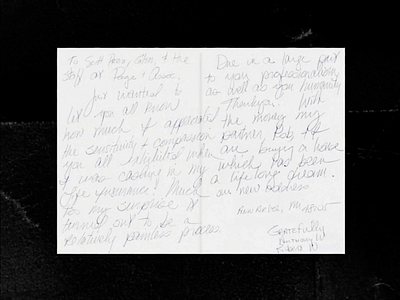 To Scott Page, John, & the
Staff at Page & Assoc.
Just wanted to
let you all know
how much I appreciated
the sensitivity & compassion
you all exhibited when
I was cashing in my
life insurance! Much
to my surprise it
turned out to be a
relatively painless process
Due in a large part
to your professionalism
as well as your humanity
Thankyou! With
the money my
partner, Rob, & I
are buying a house
which has been
a life long dream.
our new address
Ann Arbor, MI 48105
Gratefully